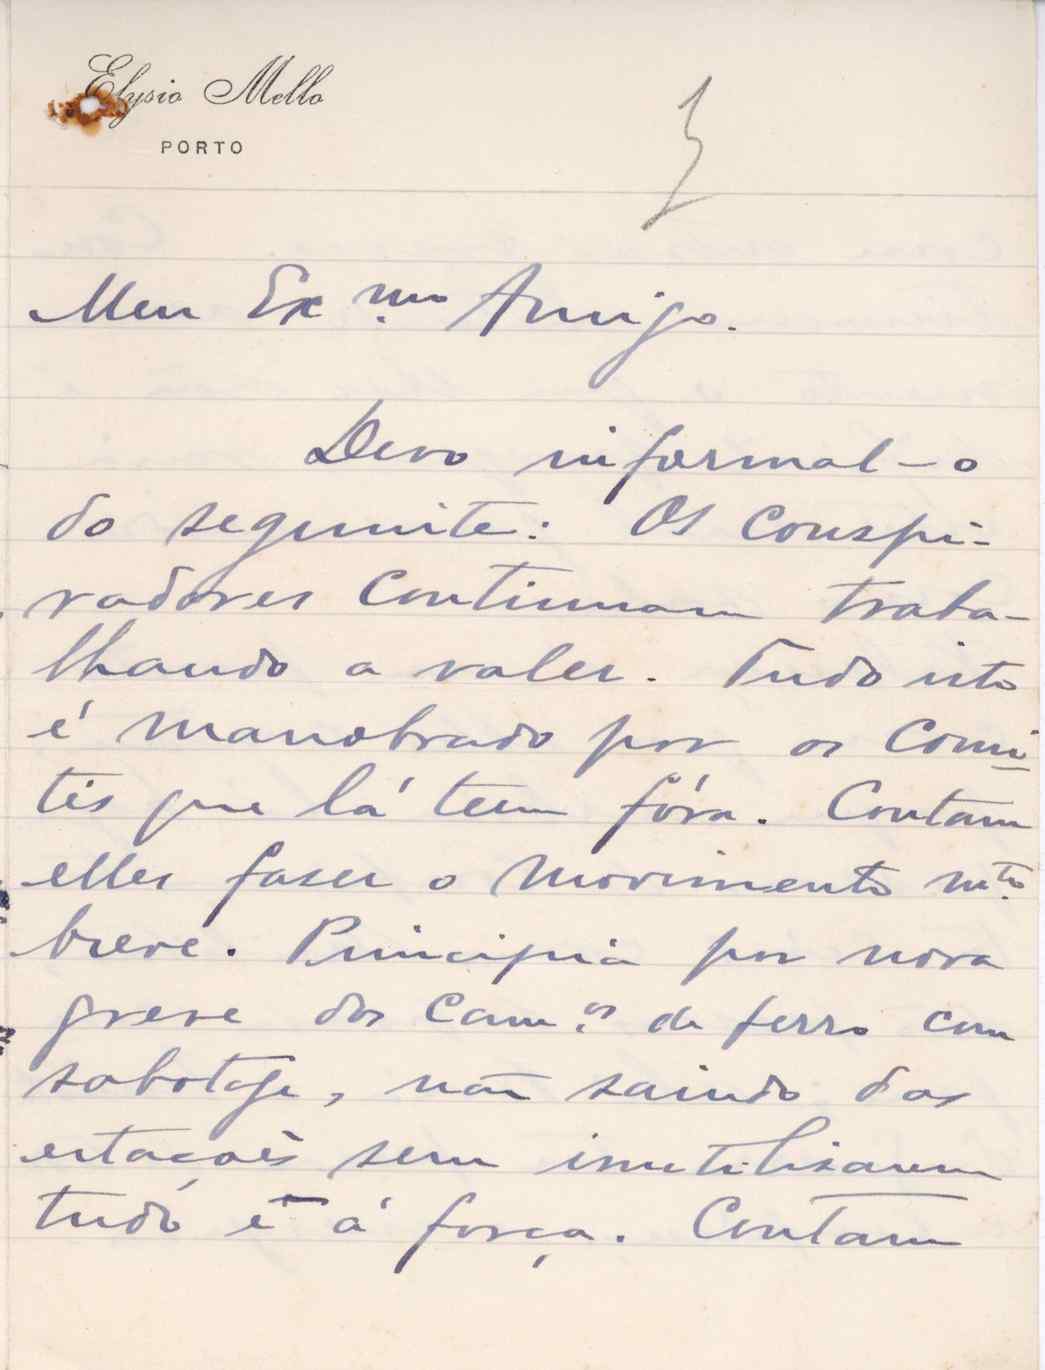 Elysio Mello
PORTO
Meu Exmo Amigo.
Devo informal-o
do seguinte: Os conspi-
radores continuam traba-
lhando a valer. Tudo isto
é manobrado por os comi-
tés que lá teem fóra. Contam
elles faser o movimento mto
breve. Principia por nova
greve dos Camos de ferro com
sabotage, não saindo das
estações sem inutilisarem
tudo e á força. Contam